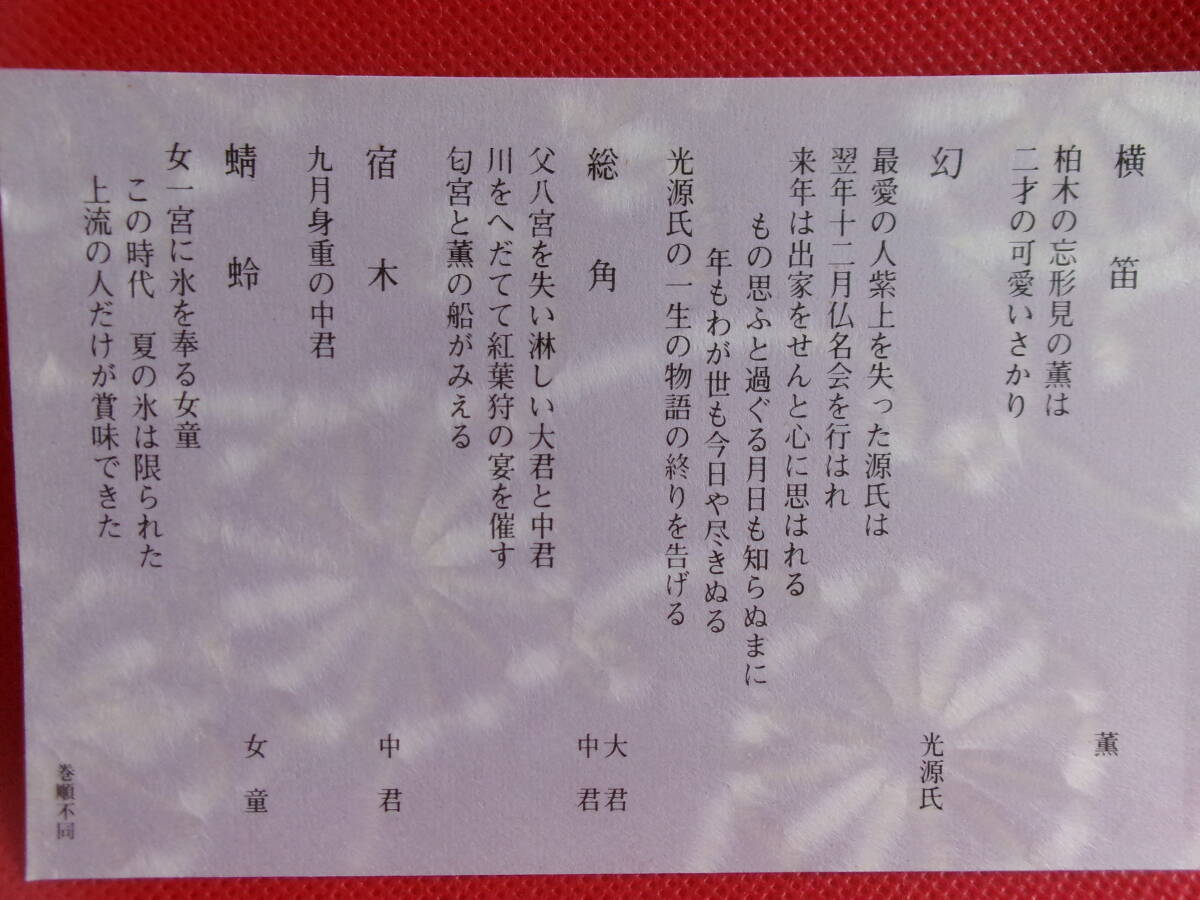 横笛
薫
柏木の忘形見の薫は
二才の可愛いさかり
幻
光源氏
最愛の人紫上を失った源氏は
翌年十二月仏名会を行はれ
来年は出家をせんと心に思はれる
もの思ふと過ぐる月日も知らぬまに
年もわが世も今日や尽きぬる
光源氏の一生の物語の終りを告げる
総角
大君
中君
父八宮を失い淋しい大君と中君
川をへだてて紅葉狩の宴を催す
匂宮と薫の船がみえる
宿木
中君
九月身重の中君
蜻蛉
女童
女一宮に氷を奉る女童
この時代 夏の氷は限られた
上流の人だけが賞味できた
巻順不同